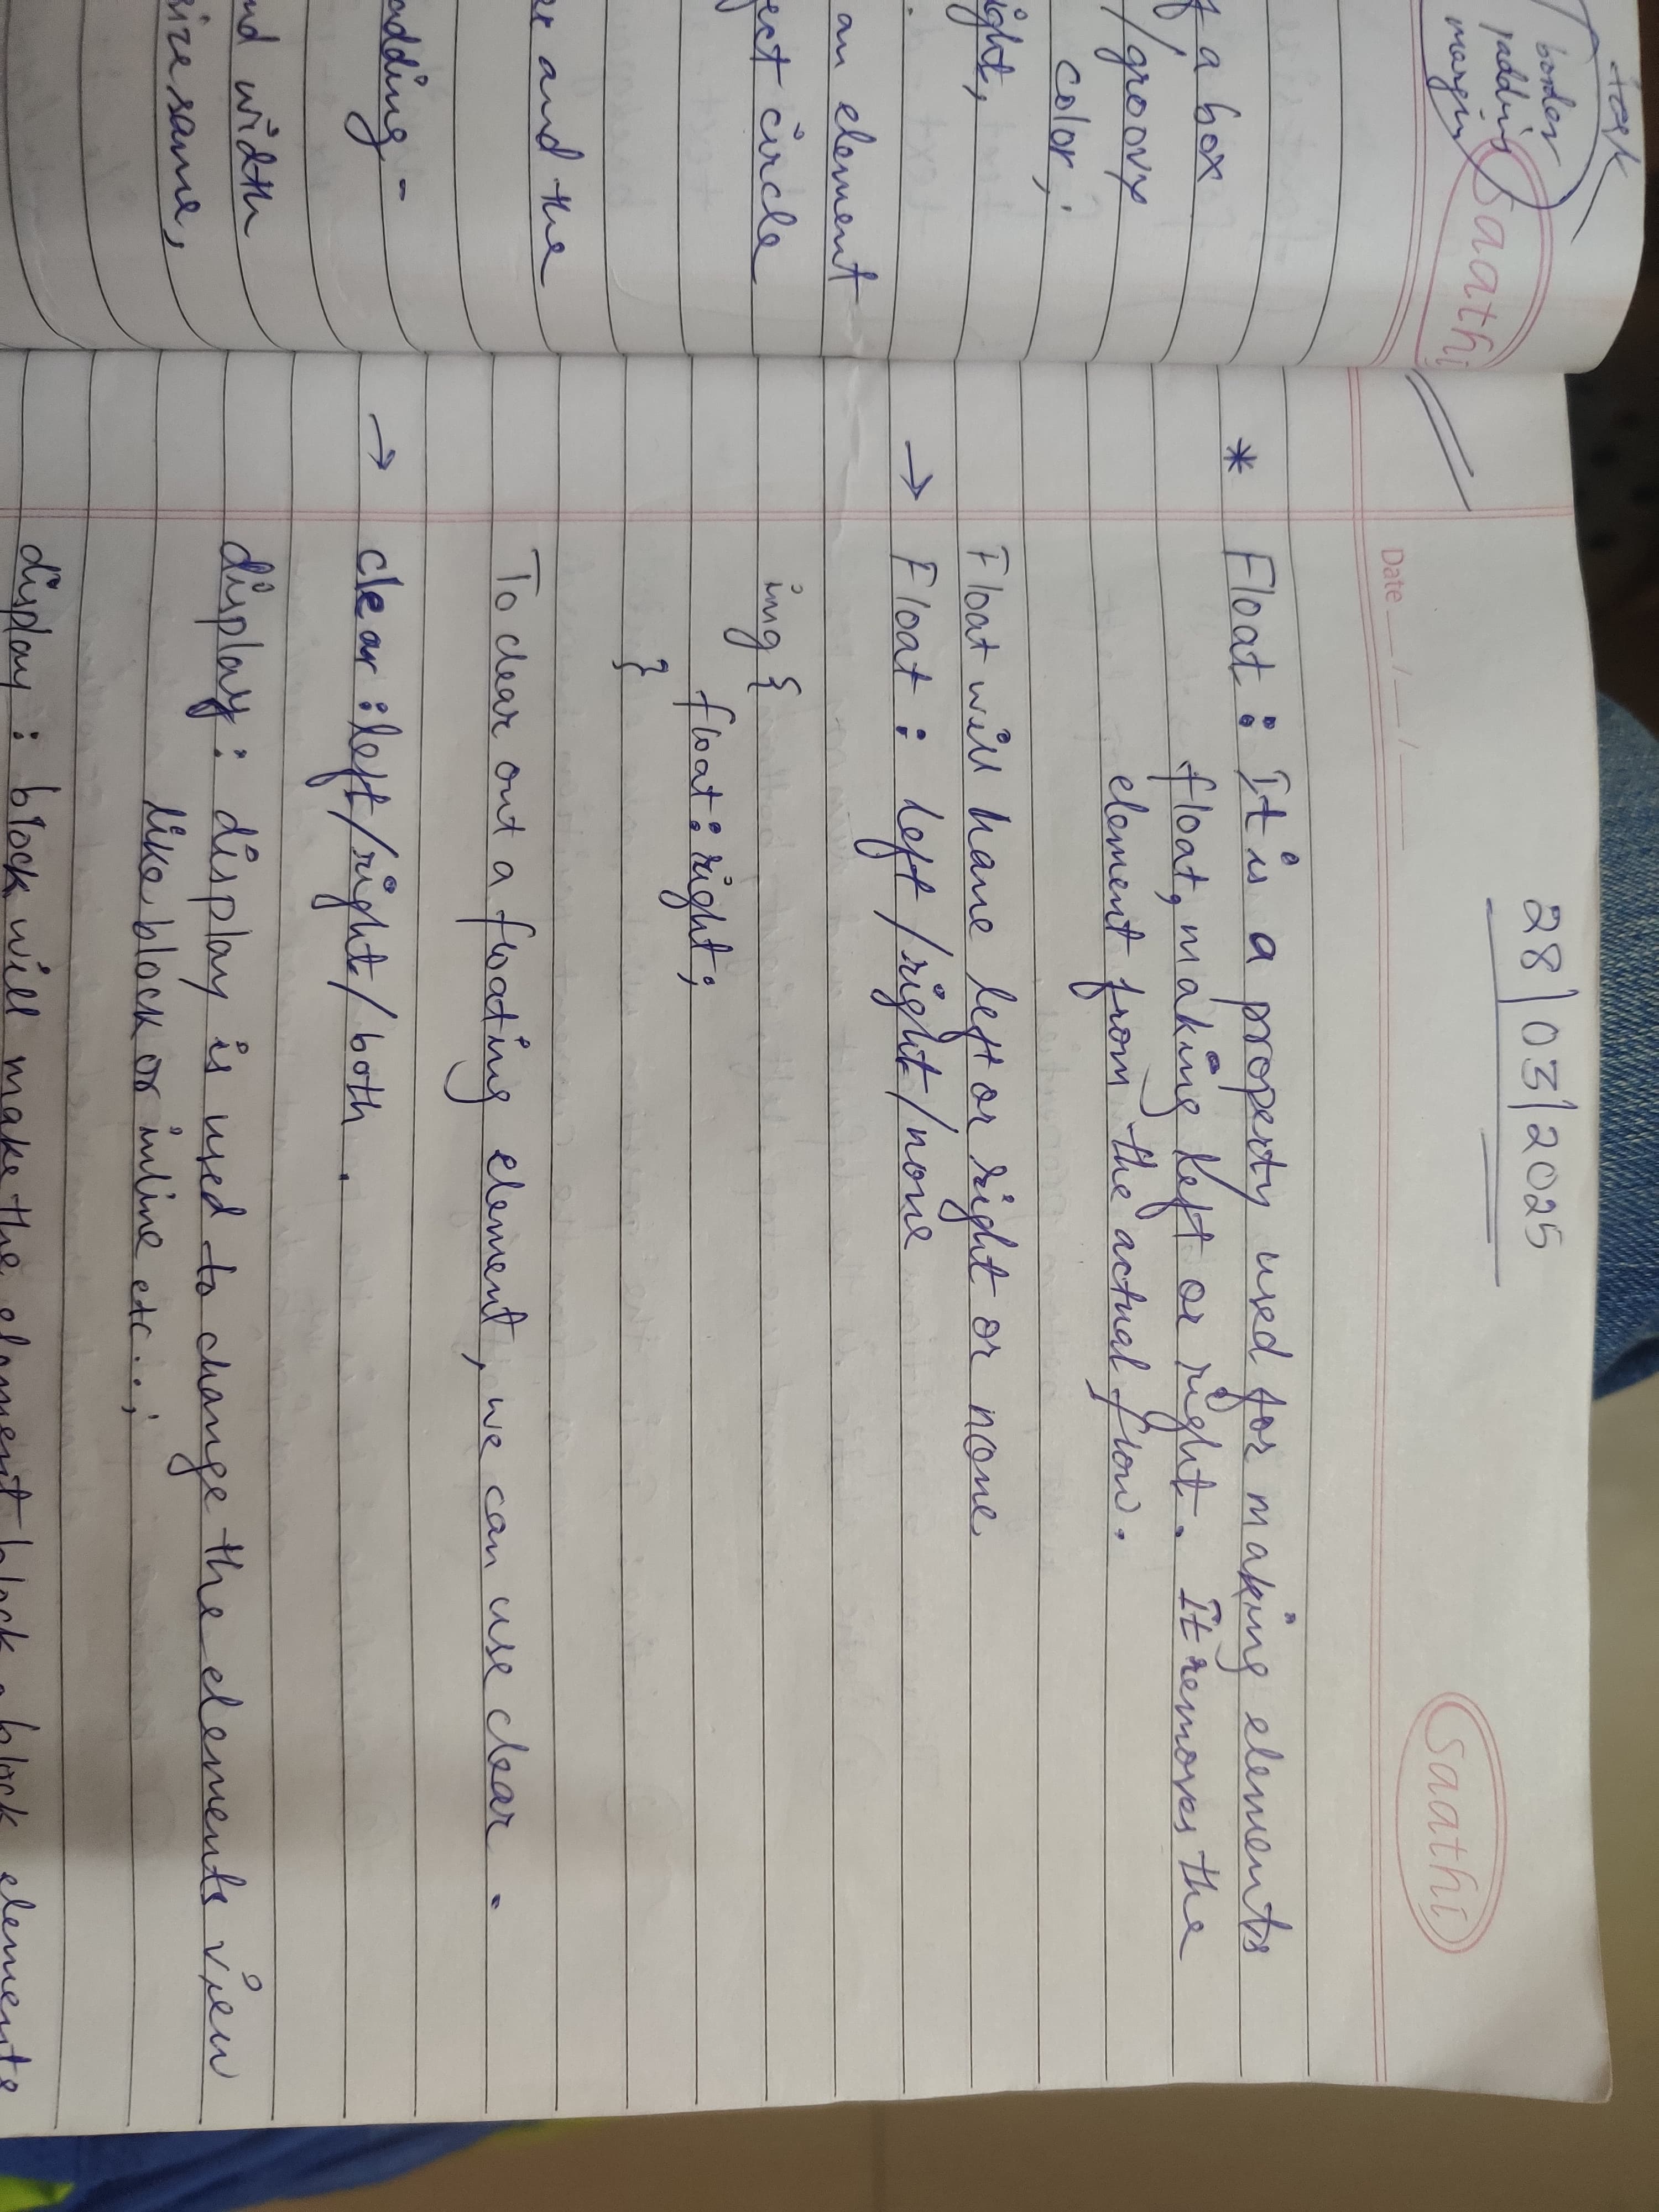 task
border
padding
margin
Saathi
f a box
/groovy
color;
ight,
an element
ect circle
er and the
adding -
nd width
size same,
28/03/2025
Saathi
Date __/__/__
* Float : It is a property used for making elements
float, making left or right. It removes the
element from the actual flow.
Float will have left or right or none
→ Float : left/right/none
img {
float : right;
}
To clear out a floating element, we can use clear.
→ clear : left/right/both .
display : display is used to change the elements view
like block or inline etc...;
display : block will make the element block a block elements